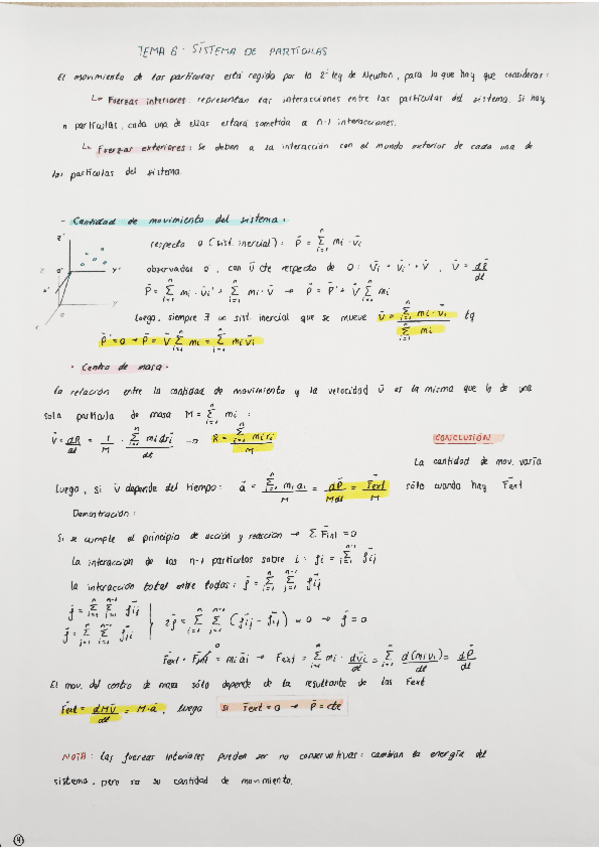 TEMA 6 · SISTEMA DE PARTÍCULAS
El movimiento de las partículas está regido por la 2ª ley de Newton, para lo que hay que considerar:
↳ Fuerzas interiores: representan las interacciones entre las partículas del sistema. Si hay
n partículas, cada una de ellas estará sometida a n-1 interacciones.
↳ Fuerzas exteriores: Se deben a la interacción con el mundo exterior de cada una de
las partículas del sistema.
- Cantidad de movimiento del sistema:
respecto O (sist. inercial): P̄ = Σ_{i=1}^{n} mi · v̄i
observador O', con v̄ cte respecto de O: v̄i = v̄i' + V̄ , V̄ = dR̄/dt
P̄ = Σ_{i=1}^{n} mi · v̄i' + Σ_{i=1}^{n} mi · V̄ → P̄ = P̄' + V̄ Σ_{i=1}^{n} mi
luego, siempre ∃ un sist. inercial que se mueve v̄ = Σ_{i=1}^{n} mi · v̄i / Σ_{i=1}^{n} mi tq
P̄' = 0 → P̄ = V̄ Σ_{i=1}^{n} mi = Σ_{i=1}^{n} mi v̄i
· Centro de masa ·
La relación entre la cantidad de movimiento y la velocidad v̄ es la misma que la de una
sola partícula de masa M = Σ_{i=1}^{n} mi :
V̄ = dR̄/dt = 1/M · Σ_{i=1}^{n} mi dr̄i/dt → R̄ = Σ_{i=1}^{n} mi r̄i / M
CONCLUSIÓN
La cantidad de mov. varía
sólo cuando hay F̄ext
luego, si v̄ depende del tiempo: ā = Σ_{i=1}^{n} mi āi / M = dP̄/Mdt = F̄ext/M
Demostración:
Si se cumple el principio de acción y reacción → Σ F̄int = 0
La interacción de las n-1 partículas sobre i: f̄i = Σ_{i=1}^{n-1} f̄ij
la interacción total entre todas: f̄ = Σ_{i=1}^{n} Σ_{j=1}^{n-1} f̄ij
f̄ = Σ_{i=1}^{n} Σ_{j=1}^{n-1} f̄ij
f̄ = Σ_{j=1}^{n} Σ_{i=1}^{n-1} f̄ji
2f̄ = Σ_{i=1}^{n} Σ_{j=1}^{n-1} (f̄ij - f̄ij) = 0 → f̄ = 0
F̄ext + F̄int = mi āi → F̄ext = Σ_{i=1}^{n} mi · dv̄i/dt = Σ_{i=1}^{n} d(mi v̄i)/dt = dP̄/dt
El mov. del centro de masa sólo depende de la resultante de las F̄ext
F̄ext = dMv̄/dt = M·ā , luego si F̄ext = 0 → P̄ = cte
NOTA: Las fuerzas interiores pueden ser no conservativas: cambian la energía del
sistema, pero no su cantidad de movimiento.
4